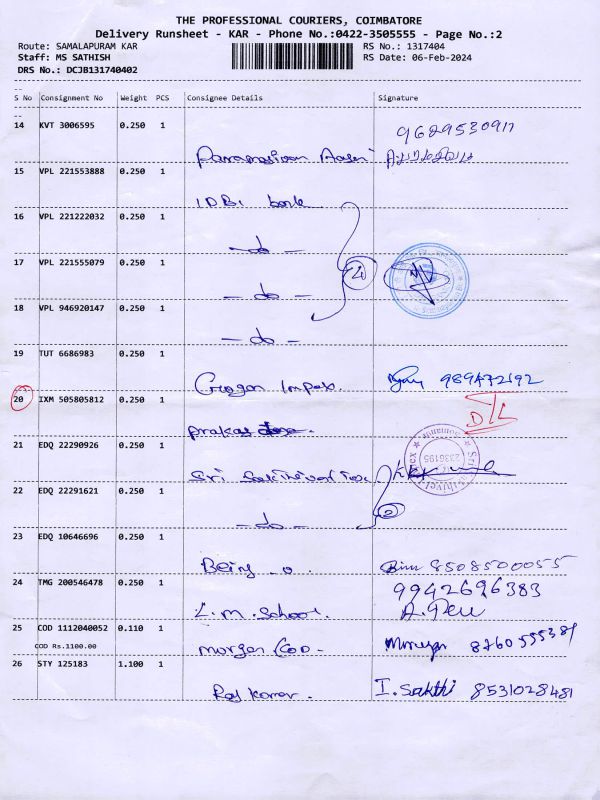 THE PROFESSIONAL COURIERS, COIMBATORE
Delivery Runsheet - KAR - Phone No.:0422-3505555 - Page No.:2
Route: SAMALAPURAM KAR
RS No.: 1317404
Staff: MS SATHISH
RS Date: 06-Feb-2024
DRS No.: DCJB131740402
S No Consignment No Weight PCS Consignee Details Signature
14 KVT 3006595 0.250 1
9629530917
15 VPL 221553888 0.250 1
IDBI bank
16 VPL 221222032 0.250 1
-do-
17 VPL 221555079 0.250 1
4
-do-
18 VPL 946920147 0.250 1
-do-
19 TUT 6686983 0.250 1
Gragon Impex.
20 IXM 505805812 0.250 1
D/L
21 EDQ 22290926 0.250 1
Sri
2336195
22 EDQ 22291621 0.250 1
-do-
2
23 EDQ 10646696 0.250 1
8508500055
24 TMG 200546478 0.250 1
9942696383
L.M. School.
25 COD 1112040052 0.110 1
COD Rs.1100.00
morgan COD - 8760555381
26 STY 125183 1.100 1
Raj Kumar. I. Sakthi 8531028481